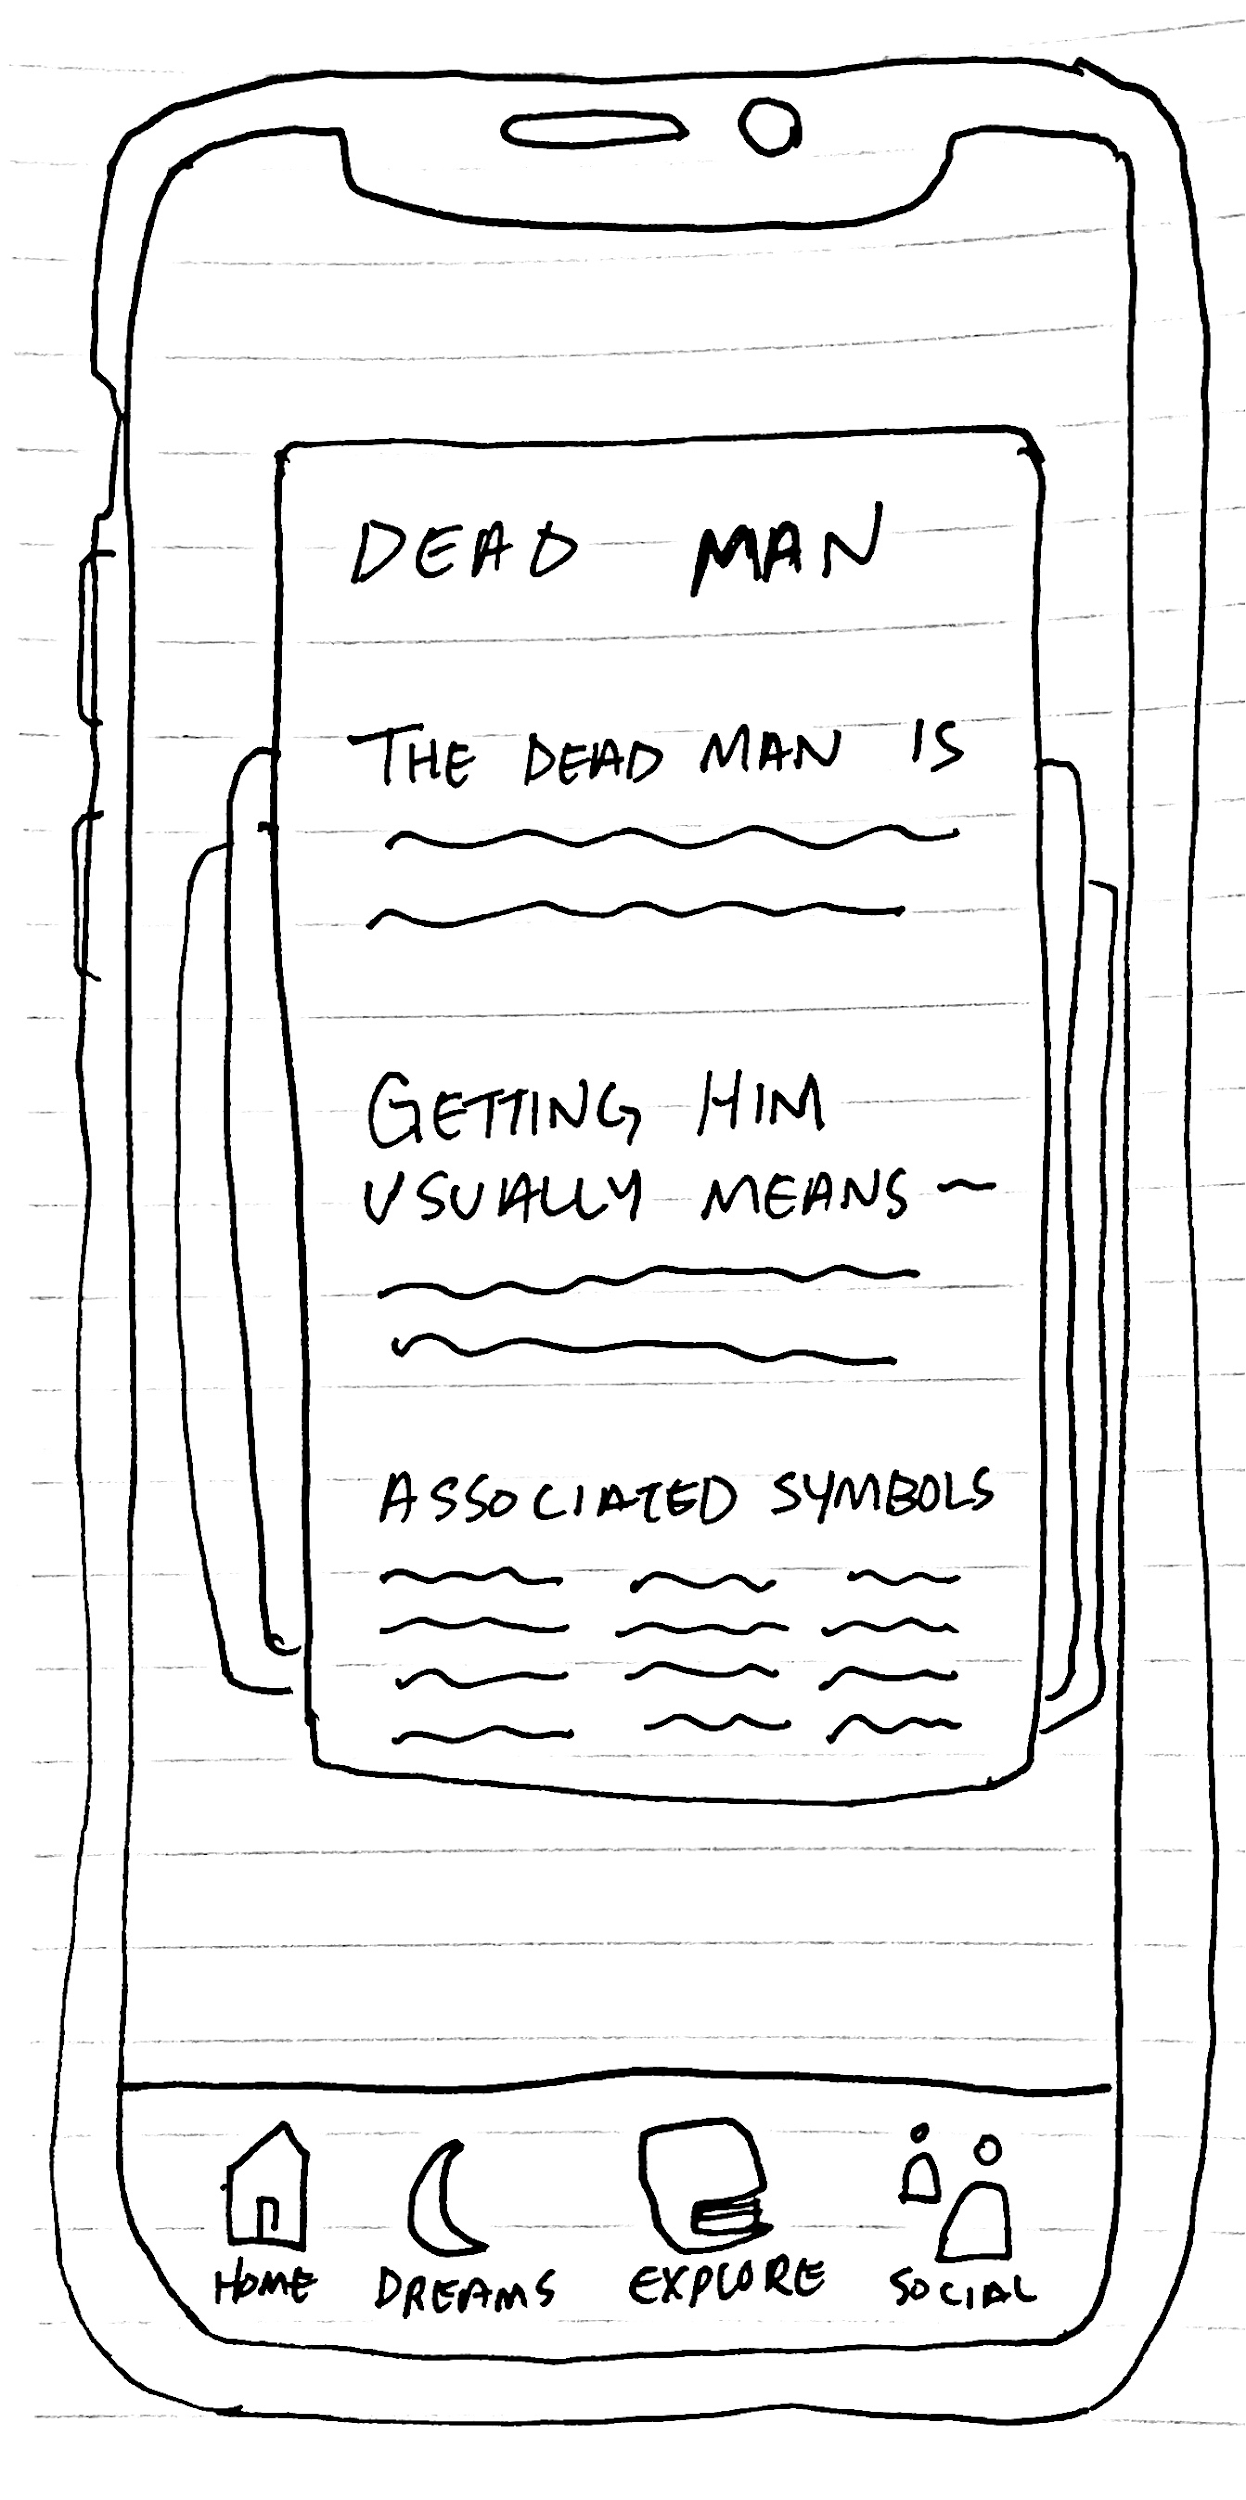 DEAD MAN
THE DEAD MAN IS
GETTING HIM
USUALLY MEANS ~
ASSOCIATED SYMBOLS
HOME DREAMS EXPLORE SOCIAL